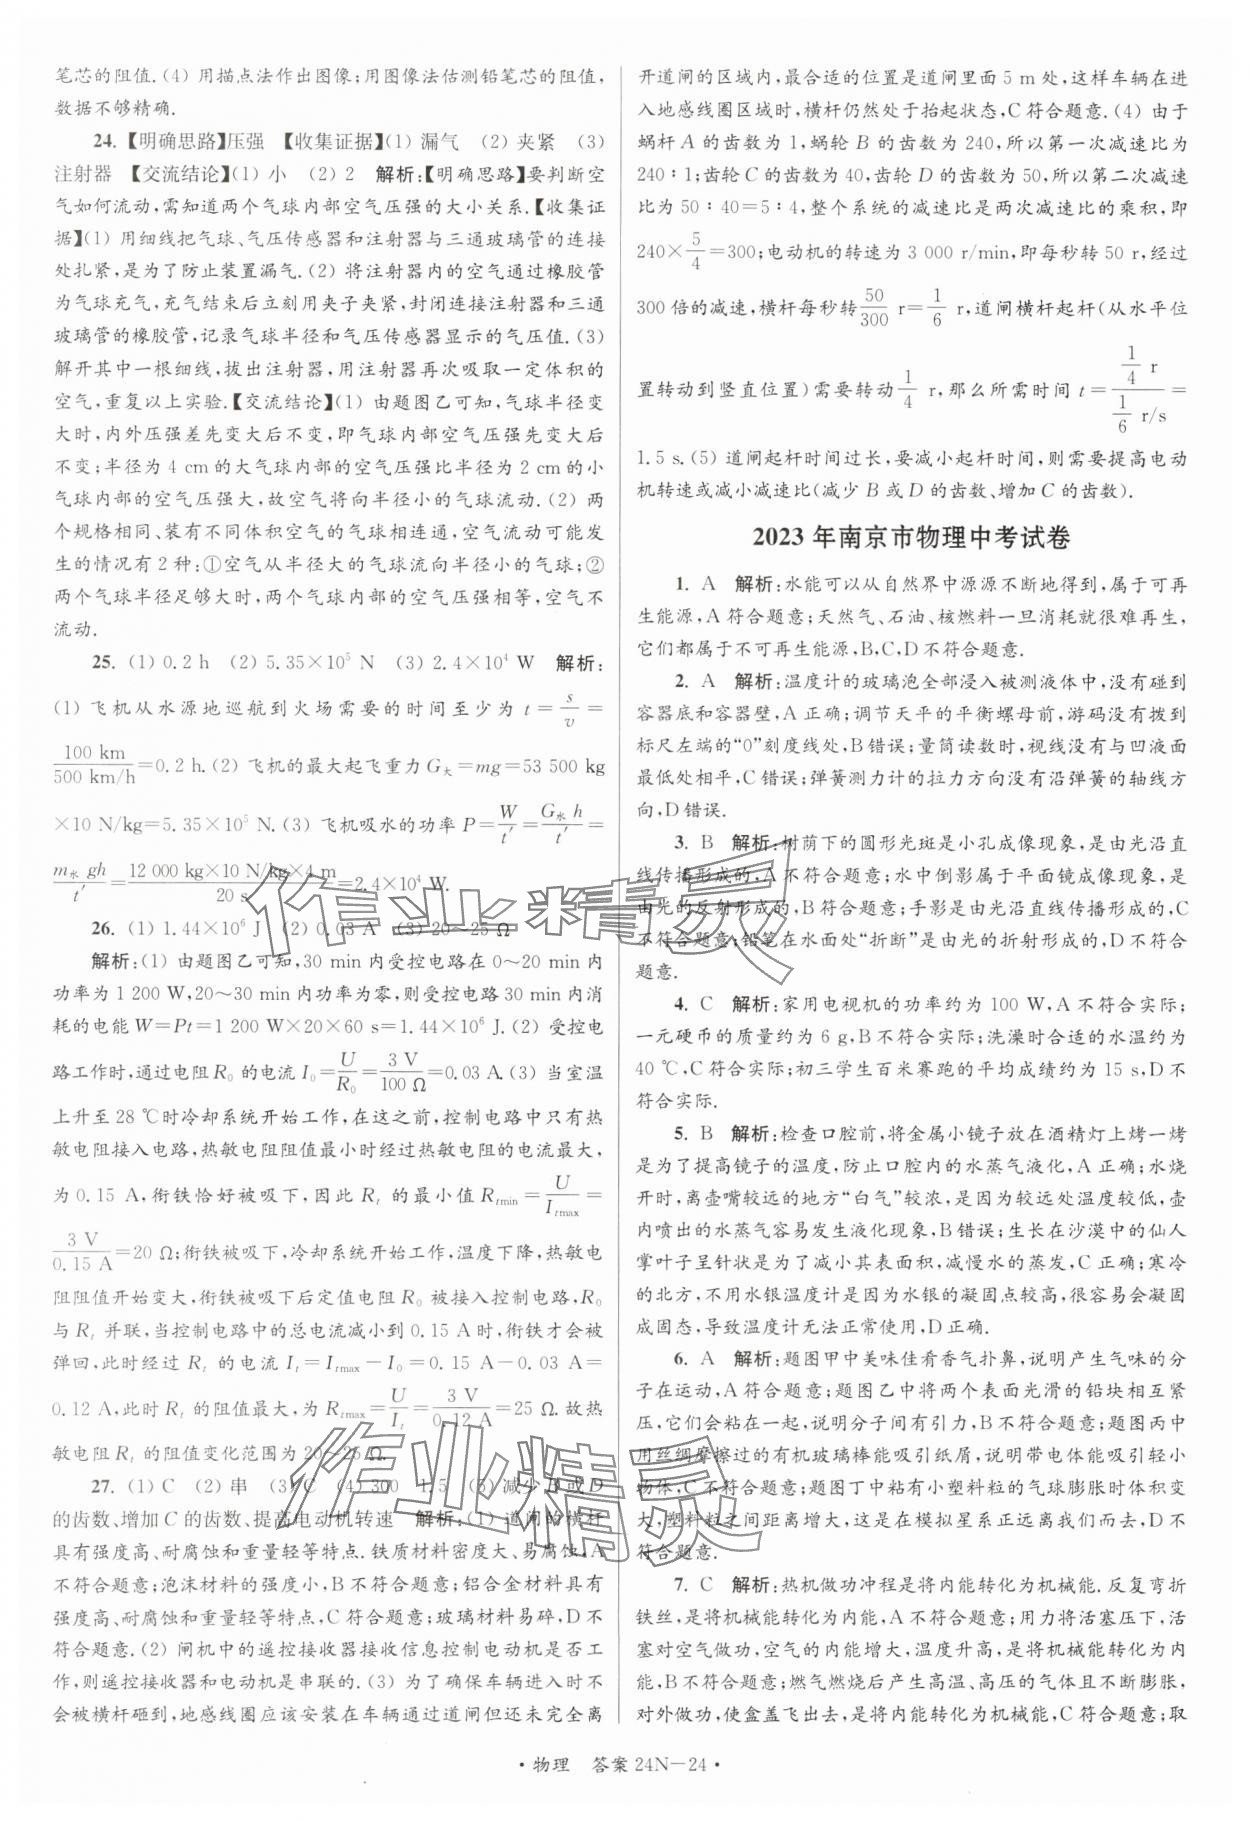 笔芯的阻值.(4) 用描点法作出图像;用图像法估测铅笔芯的阻值,
数据不够精确.
24.【明确思路】压强 【收集证据】(1) 漏气 (2) 夹紧 (3)
注射器 【交流结论】(1) 小 (2) 2 解析:【明确思路】要判断空
气如何流动,需知道两个气球内部空气压强的大小关系.【收集证
据】(1) 用细线把气球、气压传感器和注射器与三通玻璃管的连接
处扎紧,是为了防止装置漏气.(2) 将注射器内的空气通过橡胶管
为气球充气,充气结束后立刻用夹子夹紧,封闭连接注射器和三通
玻璃管的橡胶管,记录气球半径和气压传感器显示的气压值.(3)
解开其中一根细线,拔出注射器,用注射器再次吸取一定体积的
空气,重复以上实验.【交流结论】(1) 由题图乙可知,气球半径变
大时,内外压强差先变大后不变,即气球内部空气压强先变大后
不变;半径为 4 cm 的大气球内部的空气压强比半径为 2 cm 的小
气球内部的空气压强大,故空气将向半径小的气球流动.(2) 两
个规格相同、装有不同体积空气的气球相连通,空气流动可能发
生的情况有 2 种:①空气从半径大的气球流向半径小的气球;②
两个气球半径足够大时,两个气球内部的空气压强相等,空气不
流动.
25. (1) 0.2 h (2) 5.35×10⁵ N (3) 2.4×10⁴ W 解析:
(1) 飞机从水源地巡航到火场需要的时间至少为 t=s/v=
100 km/500 km/h=0.2 h.(2) 飞机的最大起飞重力 G大=mg=53 500 kg
×10 N/kg=5.35×10⁵ N.(3) 飞机吸水的功率 P=W/t′=G水 h/t′=
m水 gh/t′=12 000 kg×10 N/kg×4 m/20 s=2.4×10⁴ W.
26. (1) 1.44×10⁶ J (2) 0.03 A (3) 20~25 Ω
解析:(1) 由题图乙可知,30 min 内受控电路在 0~20 min 内
功率为 1 200 W,20~30 min 内功率为零,则受控电路 30 min 内消
耗的电能 W=Pt=1 200 W×20×60 s=1.44×10⁶ J.(2) 受控电
路工作时,通过电阻 R₀ 的电流 I₀=U/R₀=3 V/100 Ω=0.03 A.(3) 当室温
上升至 28 ℃时冷却系统开始工作,在这之前,控制电路中只有热
敏电阻接入电路,热敏电阻阻值最小时经过热敏电阻的电流最大,
为 0.15 A,衔铁恰好被吸下,因此 Rt 的最小值 Rtmin=U/Itmax=
3 V/0.15 A=20 Ω;衔铁被吸下,冷却系统开始工作,温度下降,热敏电
阻阻值开始变大,衔铁被吸下后定值电阻 R₀ 被接入控制电路,R₀
与 Rt 并联,当控制电路中的总电流减小到 0.15 A 时,衔铁才会被
弹回,此时经过 Rt 的电流 It=Itmax-I₀=0.15 A-0.03 A=
0.12 A,此时 Rt 的阻值最大,为 Rtmax=U/It=3 V/0.12 A=25 Ω.故热
敏电阻 Rt 的阻值变化范围为 20~25 Ω.
27. (1) C (2) 串 (3) C (4) 300 1.5 (5) 减少 B 或 D
的齿数、增加 C 的齿数、提高电动机转速 解析:(1) 道闸的横杆
具有强度高、耐腐蚀和重量轻等特点.铁质材料密度大、易腐蚀,A
不符合题意;泡沫材料的强度小,B 不符合题意;铝合金材料具有
强度高、耐腐蚀和重量轻等特点,C 符合题意;玻璃材料易碎,D 不
符合题意.(2) 闸机中的遥控接收器接收信息控制电动机是否工
作,则遥控接收器和电动机是串联的.(3) 为了确保车辆进入时不
会被横杆砸到,地感线圈应该安装在车辆通过道闸但还未完全离
开道闸的区域内,最合适的位置是道闸里面 5 m 处,这样车辆在进
入地感线圈区域时,横杆仍然处于抬起状态,C 符合题意.(4) 由于
蜗杆 A 的齿数为 1,蜗轮 B 的齿数为 240,所以第一次减速比为
240∶1;齿轮 C 的齿数为 40,齿轮 D 的齿数为 50,所以第二次减速
比为 50∶40=5∶4,整个系统的减速比是两次减速比的乘积,即
240×5/4=300;电动机的转速为 3 000 r/min,即每秒转 50 r,经过
300 倍的减速,横杆每秒转50/300 r=1/6 r,道闸横杆起杆(从水平位
置转动到竖直位置)需要转动1/4 r,那么所需时间 t=(1/4 r)/(1/6 r/s)=
1.5 s.(5) 道闸起杆时间过长,要减小起杆时间,则需要提高电动
机转速或减小减速比(减少 B 或 D 的齿数、增加 C 的齿数).
2023 年南京市物理中考试卷
1. A 解析:水能可以从自然界中源源不断地得到,属于可再
生能源,A 符合题意;天然气、石油、核燃料一旦消耗就很难再生,
它们都属于不可再生能源,B、C、D 不符合题意.
2. A 解析:温度计的玻璃泡全部浸入被测液体中,没有碰到
容器底和容器壁,A 正确;调节天平的平衡螺母前,游码没有拨到
标尺左端的“0”刻度线处,B 错误;量筒读数时,视线没有与凹液面
最低处相平,C 错误;弹簧测力计的拉力方向没有沿弹簧的轴线方
向,D 错误.
3. B 解析:树荫下的圆形光斑是小孔成像现象,是由光沿直
线传播形成的,A 不符合题意;水中倒影属于平面镜成像现象,是
由光的反射形成的,B 符合题意;手影是由光沿直线传播形成的,C
不符合题意;铅笔在水面处“折断”是由光的折射形成的,D 不符合
题意.
4. C 解析:家用电视机的功率约为 100 W,A 不符合实际;
一元硬币的质量约为 6 g,B 不符合实际;洗澡时合适的水温约为
40 ℃,C 符合实际;初三学生百米赛跑的平均成绩约为 15 s,D 不
符合实际.
5. B 解析:检查口腔前,将金属小镜子放在酒精灯上烤一烤
是为了提高镜子的温度,防止口腔内的水蒸气液化,A 正确;水烧
开时,离壶嘴较远的地方“白气”较浓,是因为较远处温度较低,壶
内喷出的水蒸气容易发生液化现象,B 错误;生长在沙漠中的仙人
掌叶子呈针状是为了减小其表面积,减慢水的蒸发,C 正确;寒冷
的北方,不用水银温度计是因为水银的凝固点较高,很容易会凝固
成固态,导致温度计无法正常使用,D 正确.
6. A 解析:题图甲中美味佳肴香气扑鼻,说明产生气味的分
子在运动,A 符合题意;题图乙中将两个表面光滑的铅块相互紧
压,它们会粘在一起,说明分子间有引力,B 不符合题意;题图丙中
用丝绸摩擦过的有机玻璃棒能吸引纸屑,说明带电体能吸引轻小
物体,C 不符合题意;题图丁中粘有小塑料粒的气球膨胀时体积变
大,塑料粒之间距离增大,这是在模拟星系正远离我们而去,D 不
符合题意.
7. C 解析:热机做功冲程是将内能转化为机械能.反复弯折
铁丝,是将机械能转化为内能,A 不符合题意;用力将活塞压下,活
塞对空气做功,空气的内能增大,温度升高,是将机械能转化为内
能,B 不符合题意;燃气燃烧后产生高温、高压的气体且不断膨胀,
对外做功,使盒盖飞出去,是将内能转化为机械能,C 符合题意;取
• 物理 答案 24N—24 •
作业精灵
作业精灵